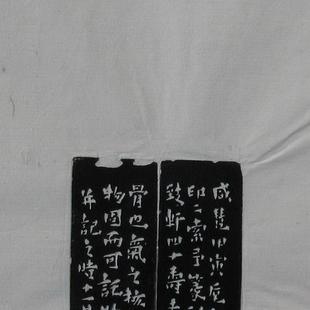 咸豐甲寅
印二索予篆
軒四十壽
骨也氣之核
物固而可記
并記之時十一月